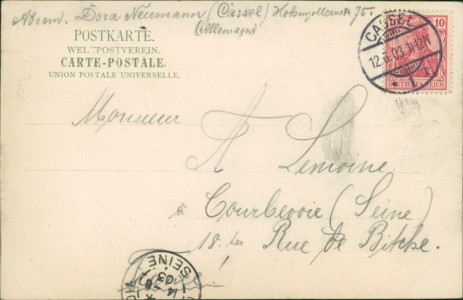 Absm. Dora Neumann / (Cassel) Hohenzollernstr 75.
(Allemagne)
POSTKARTE.
WELTPOSTVEREIN.
CARTE-POSTALE.
UNION POSTALE UNIVERSELLE.
CASSEL
12.6.03.11-12N
10
Monsieur
A Lemoine
à Courbevoie (Seine)
18. ter Rue de Bitche.
SEINE
14 -6
03